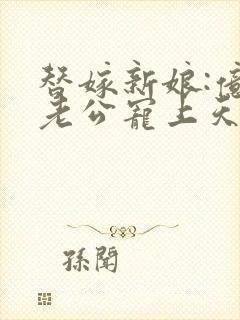 替嫁新娘:億
老公寵上天
孫閣